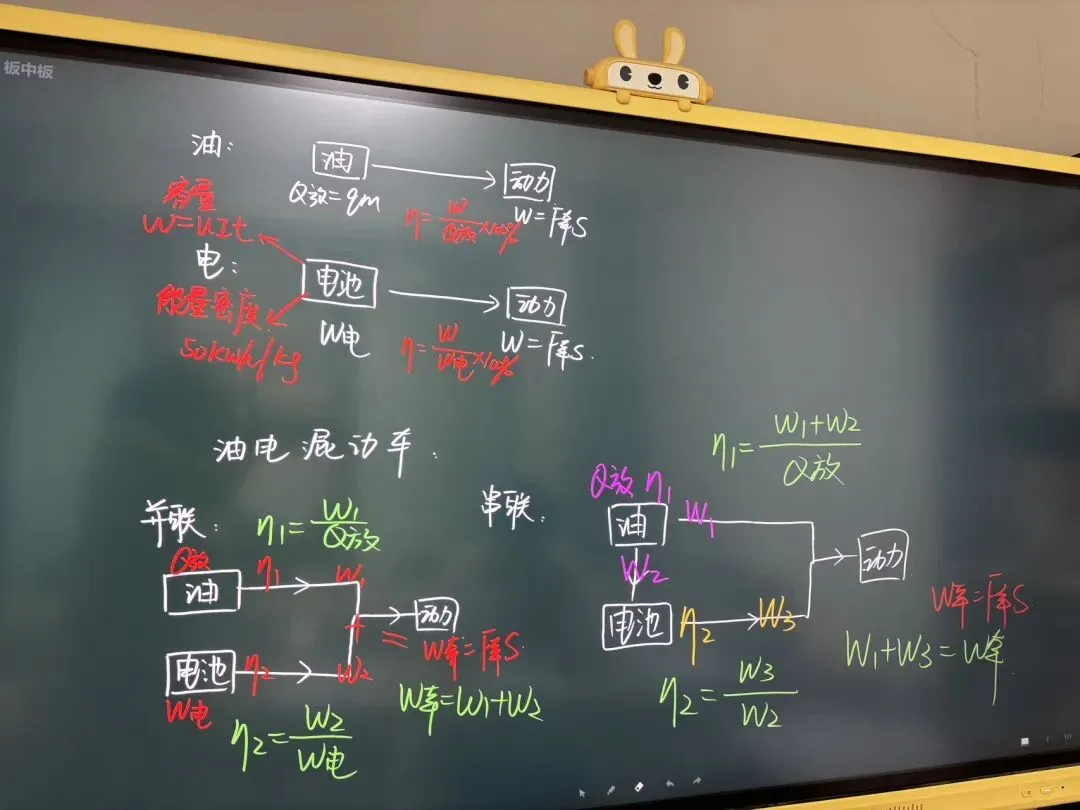 板中板
油:
油
动力
Q放=qm
η=W/Q放×100%
W=F牵S
容量
W=UIt
电:
电池
动力
能量密度
50kwh/kg
W电
η=W/W电×100%
W=F牵S.
油电混动车.
并联:
η1=W1/Q放
Q放
油
η1
W1
动力
+
=
W牵=F牵S
电池
η2
W2
W电
W牵=W1+W2
η2=W2/W电
串联:
η1=W1+W2/Q放
Q放 η1
油
W1
W2
动力
电池
η2
W3
W牵=F牵S
W1+W3=W牵
η2=W3/W2